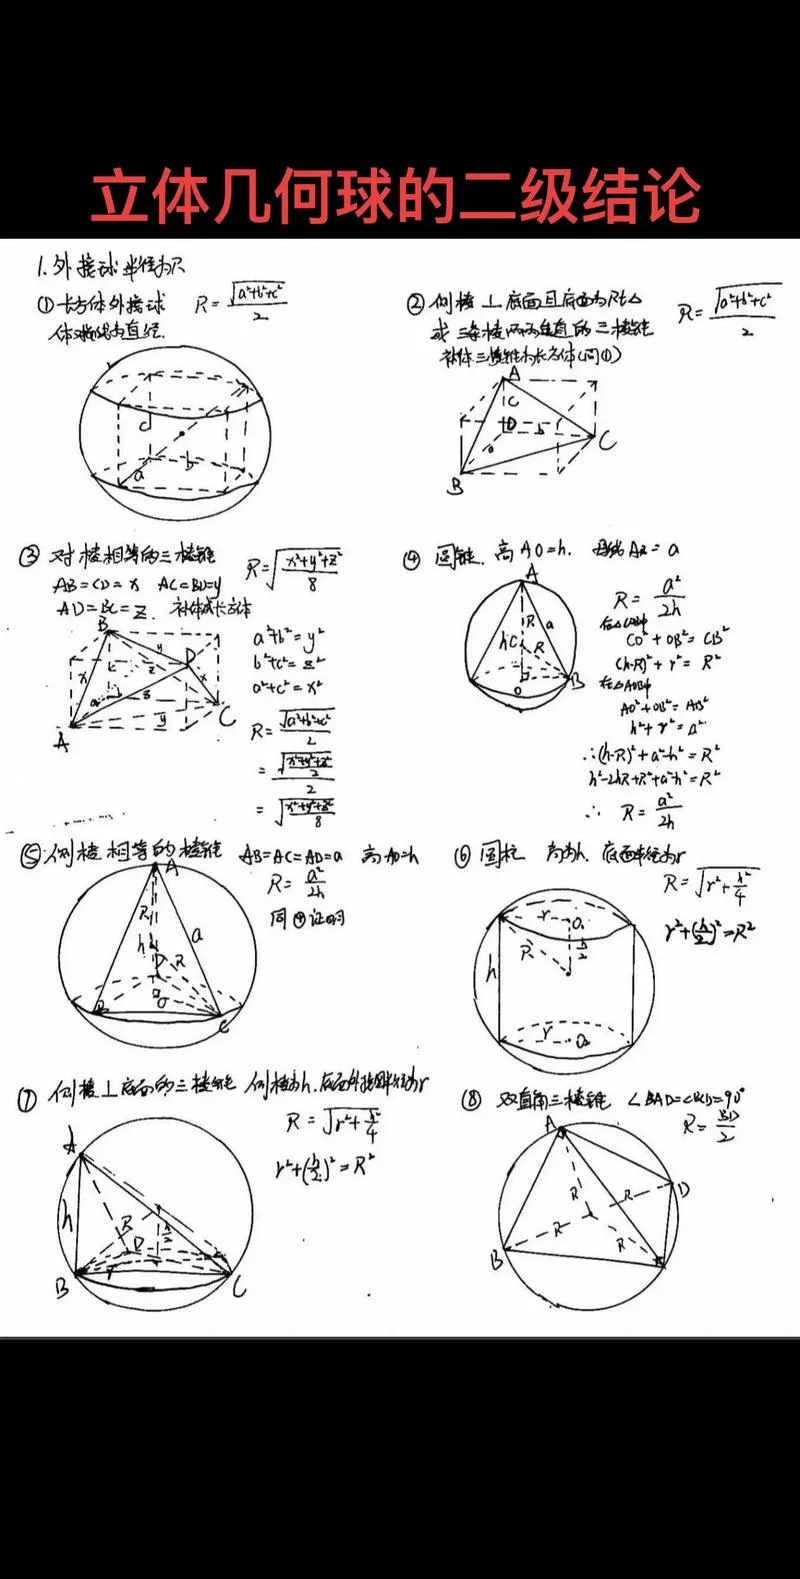 立体几何球的二级结论
1.外接球半径为R
① 长方体外接球 R=√(a²+b²+c²)/2
体对角线为直径.
c
a
b
② 侧棱⊥底面且底面为Rt△ R=√(a²+b²+c²)/2
或三条棱两两垂直的三棱锥
补体三棱锥为长方体(同①)
A
C
D
b
a
C
B
③ 对棱相等的三棱锥 R=√((x²+y²+z²)/8)
AB=CD=x AC=BD=y
AD=BC=z. 补体成长方体
a²+b²=y²
b²+c²=z²
a²+c²=x²
R=√(a²+b²+c²)/2
=√((x²+y²+z²)/2)/2
=√((x²+y²+z²)/8)
B
y
D
x
z
x
a
b
z
C
y
A
④ 圆锥. 高AO=h. 母线AB=a
R=a²/2h
在△COB中
CO²+OB²=CB²
(h-R)²+r²=R²
在△AOB中
AO²+OB²=AB²
h²+r²=a²
∴(h-R)²+a²-h²=R²
h²-2hR+R²+a²-h²=R²
∴ R=a²/2h
A
R
a
h
C
R
O
B
⑤ 侧棱相等的棱锥 AB=AC=AD=a 高AO=h
R=a²/2h
同④证明
A
R
a
h
R
D
O
B
C
⑥ 圆柱 高为h. 底面半径为r
R=√(r²+h²/4)
r²+(h/2)²=R²
r
O₁
h/2
R
h
r
O₂
⑦ 侧棱⊥底面的三棱锥 侧棱为h.底面外接圆半径为r
R=√(r²+h²/4)
r²+(h/2)²=R²
A
h
R
h/2
D
r
B
C
⑧ 双直角三棱锥 ∠BAD=∠BCD=90°
R=BD/2
A
R
R
D
R
R
B